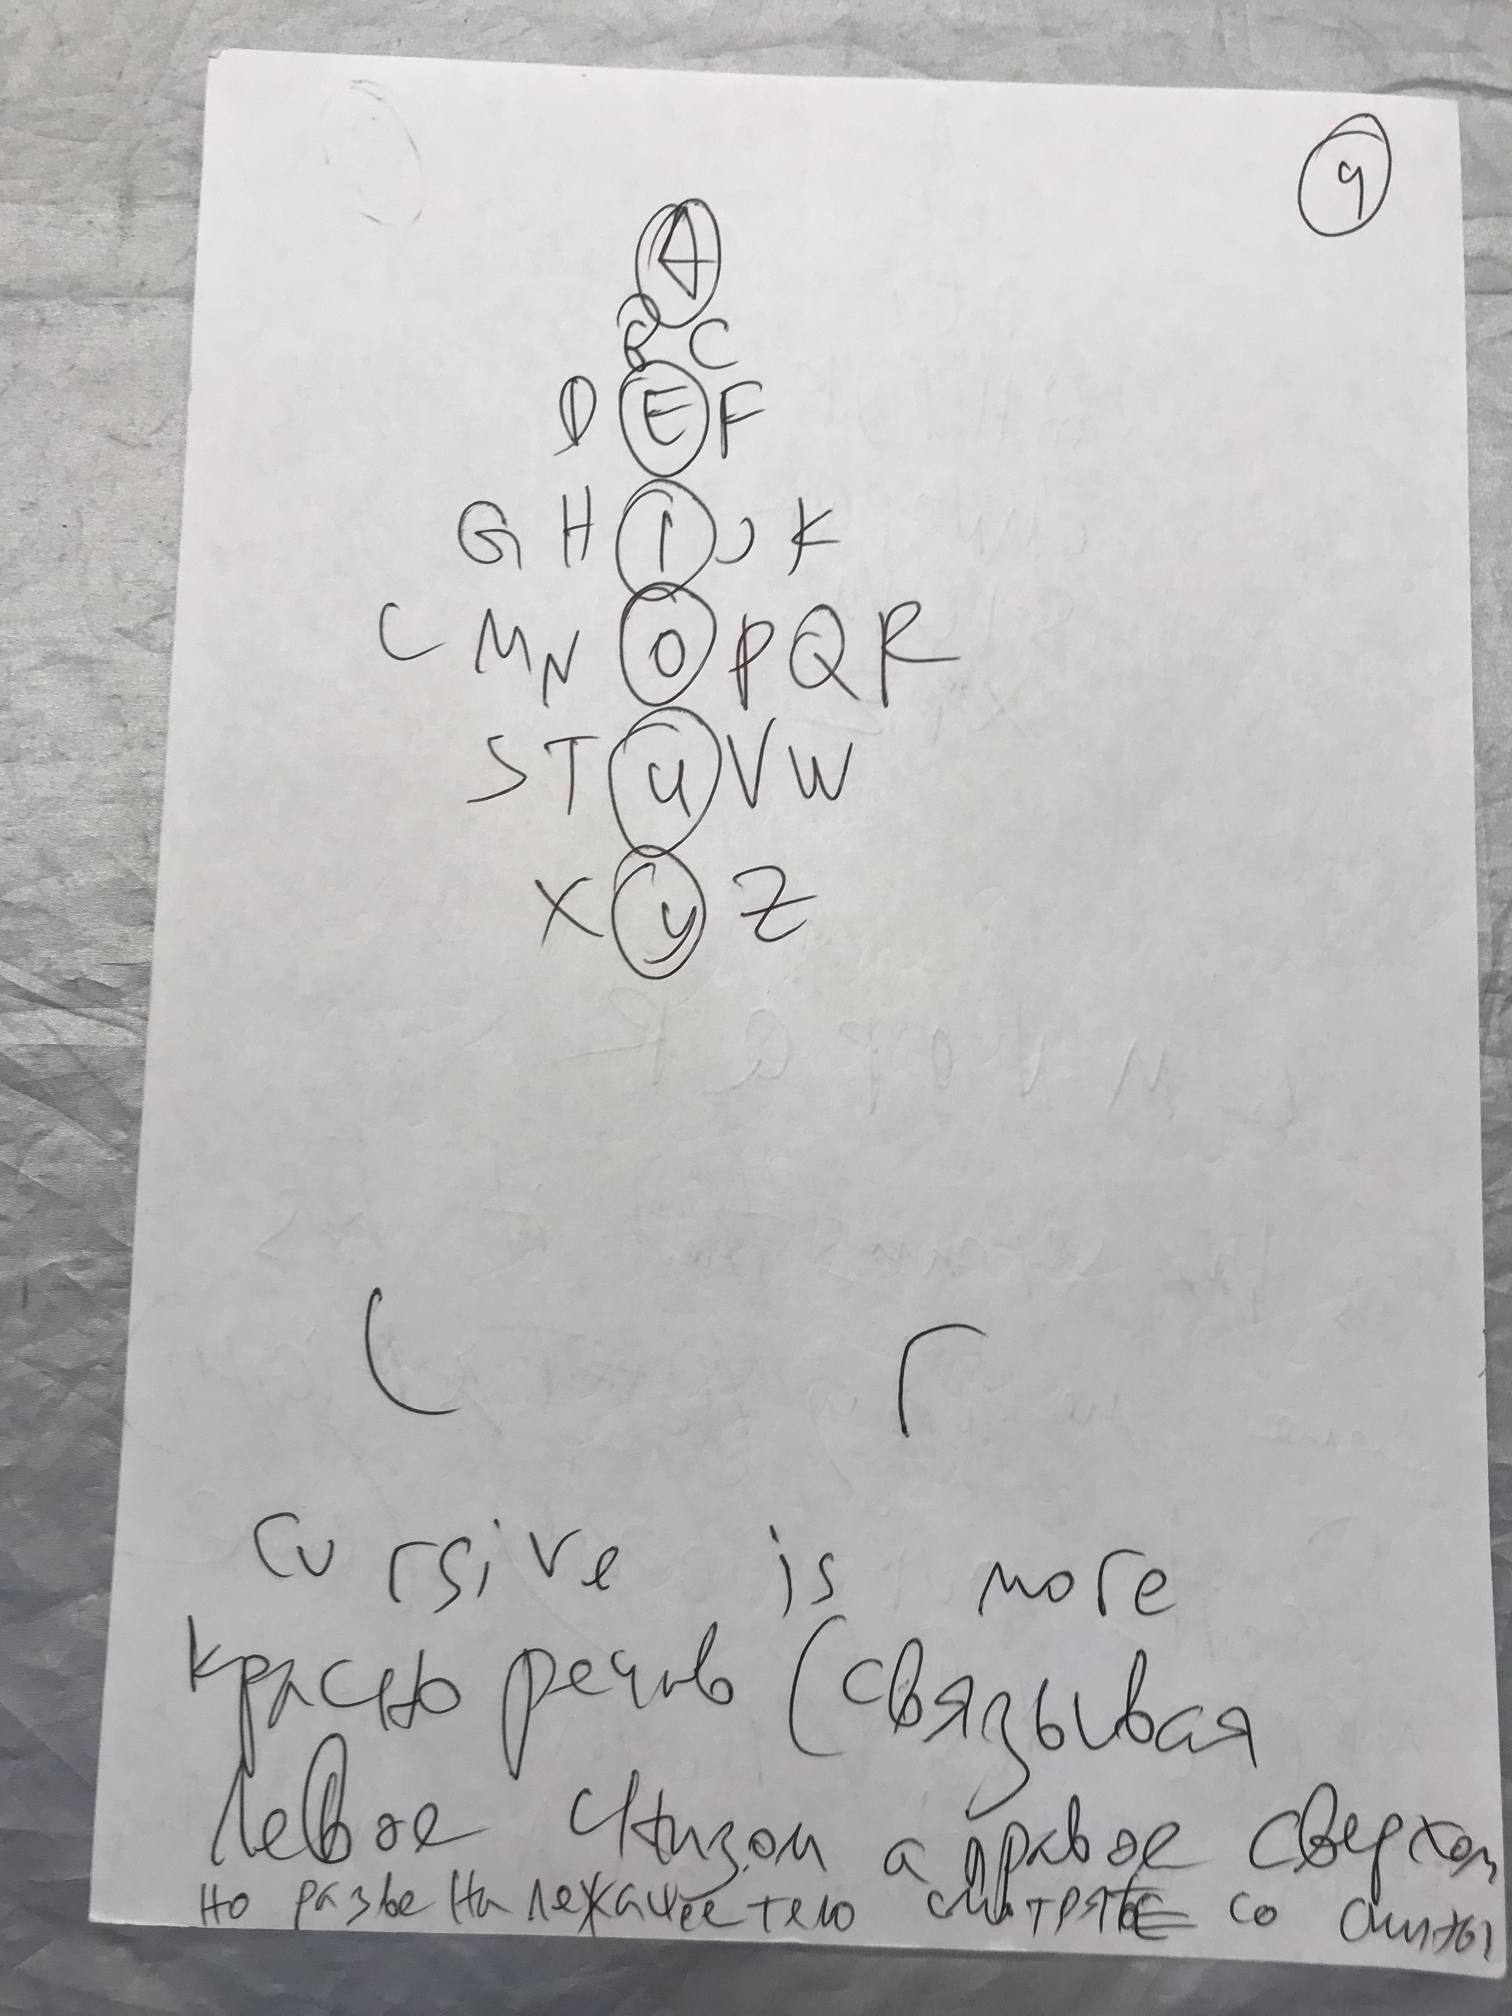 9
A
B C
D E F
G H I J K
L M N O P Q R
S T U V W
X Y Z
cursive is more
красно речив (связывая
левое снизом а правое сверхом
но разве на лежачее тело смотрять со спины